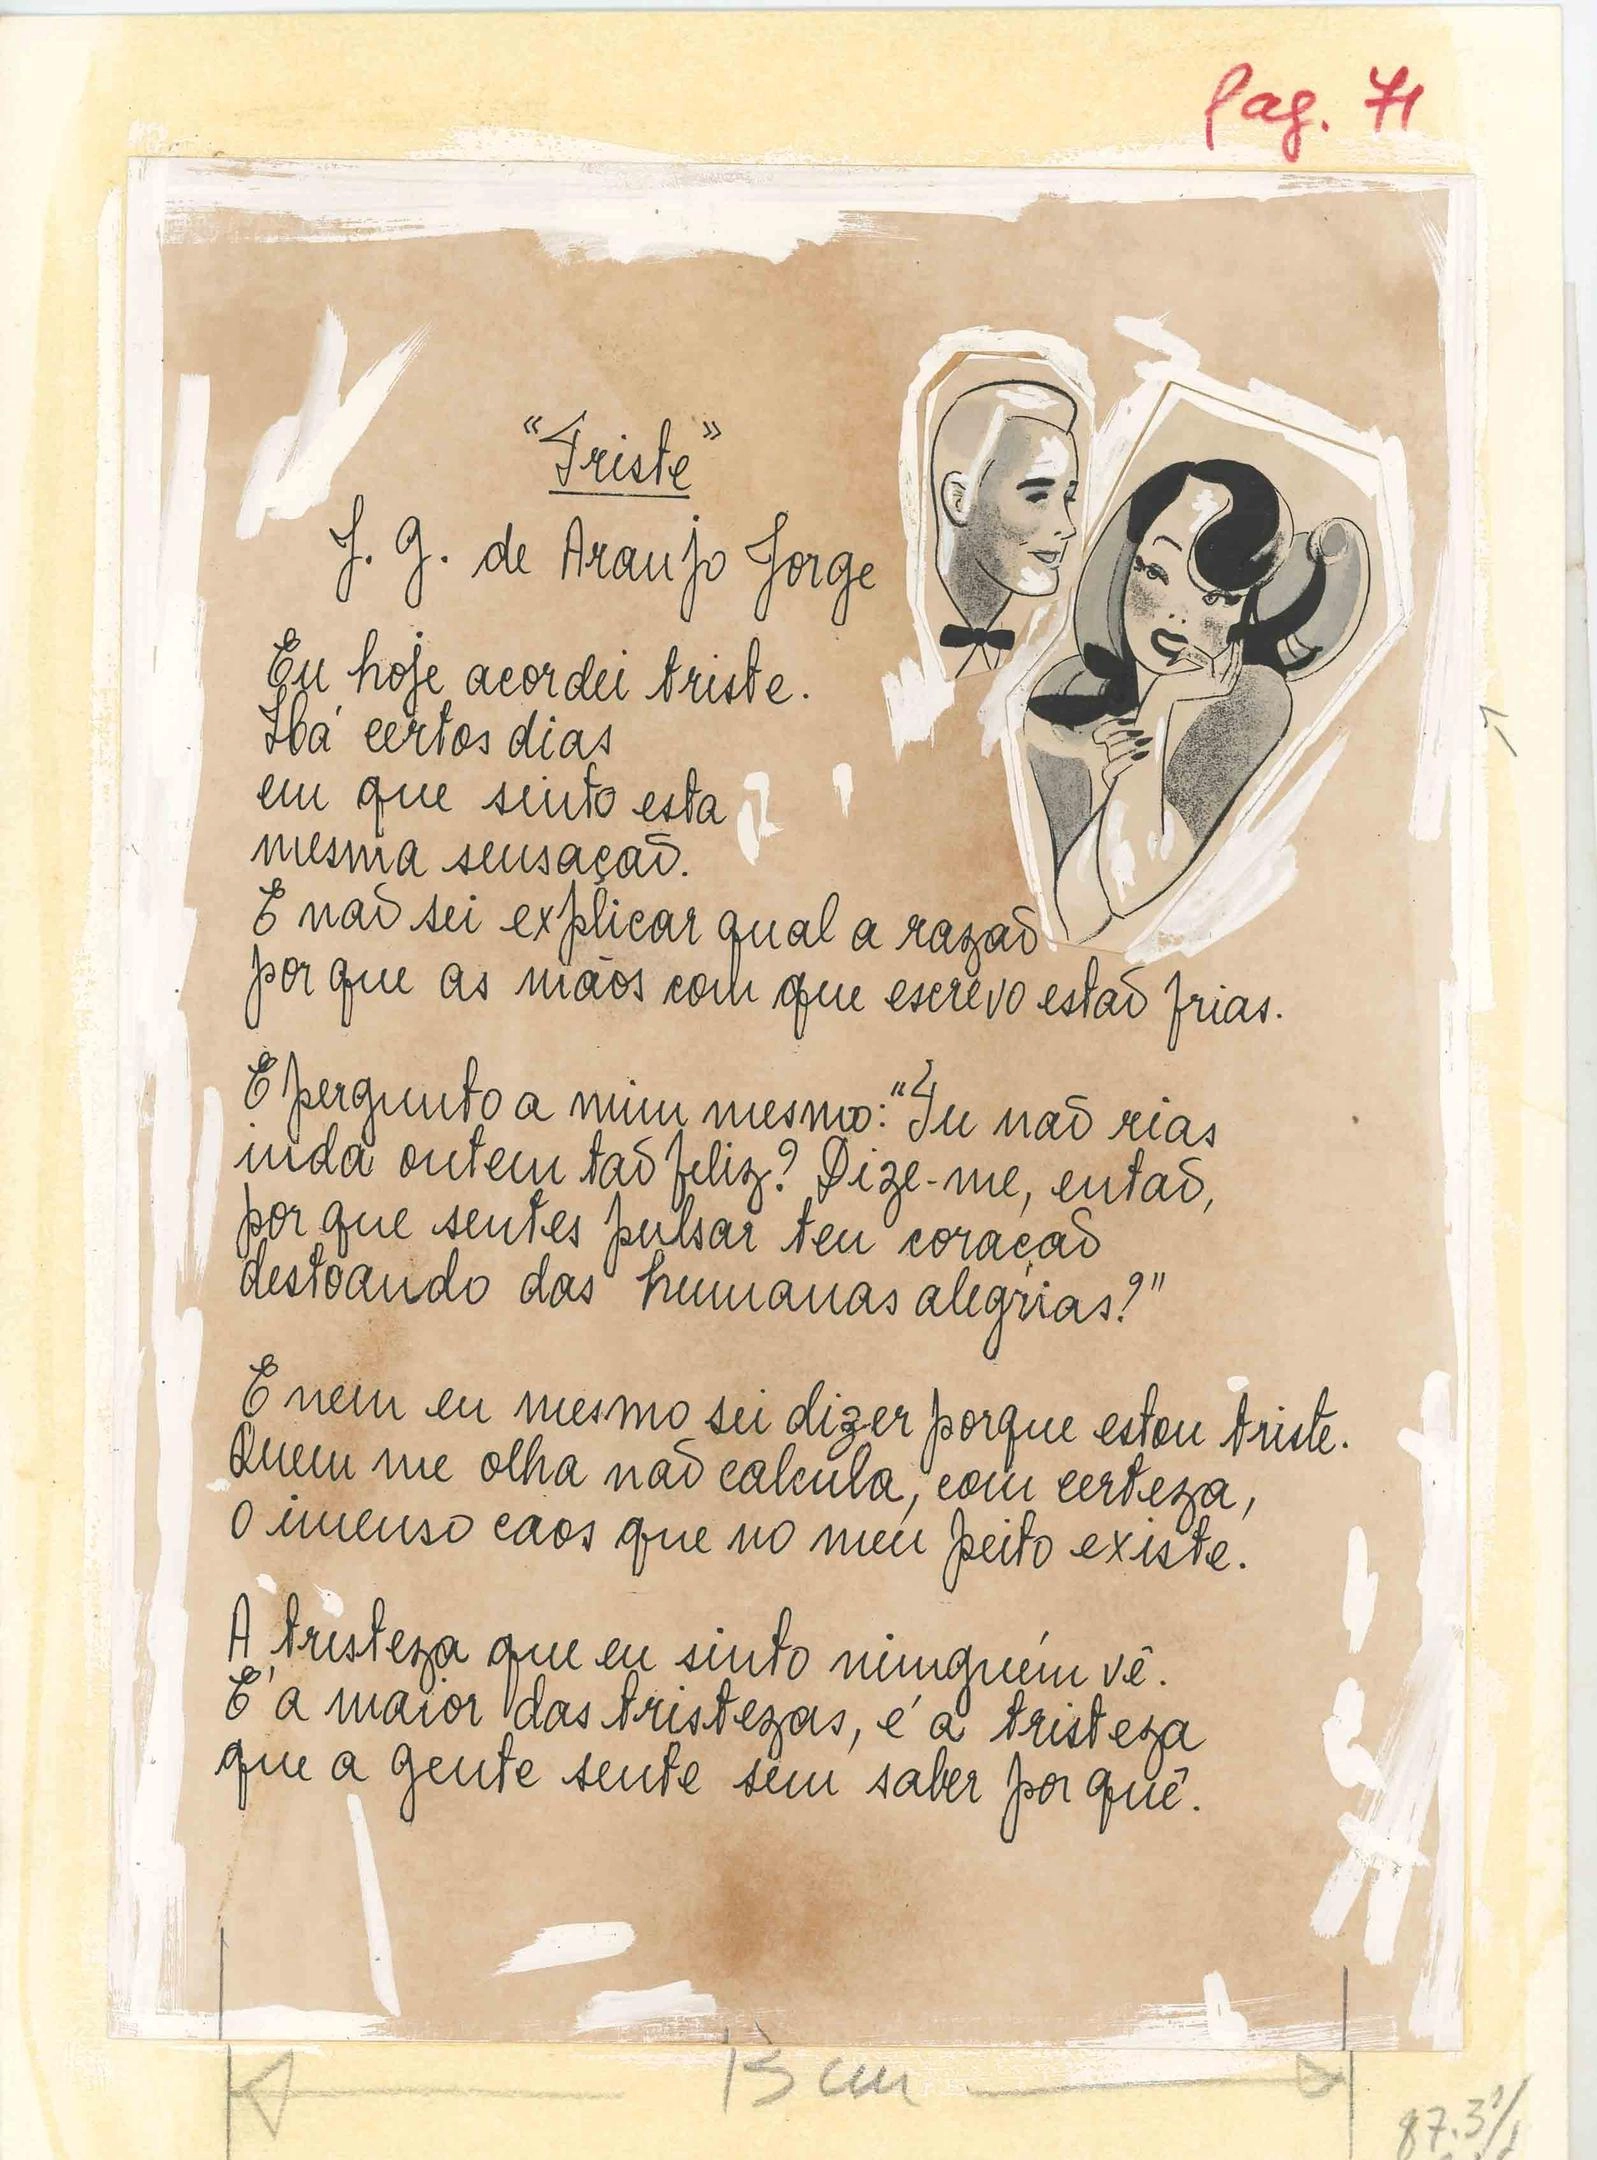 Pag. 71
"Triste"
J. G. de Araujo Jorge
Eu hoje acordei triste.
Há certos dias
em que sinto esta
mesma sensação.
E não sei explicar qual a razão
por que as mãos com que escrevo estão frias.
E pergunto a mim mesmo: "Tu não rias
inda ontem tão feliz? Dize-me, então,
por que sentes pulsar teu coração
destoando das humanas alegrias?"
E nem eu mesmo sei dizer porque estou triste.
Quem me olha não calcula, com certeza,
o imenso caos que no meu peito existe.
A tristeza que eu sinto ninguém vê.
E' a maior das tristezas, é a tristeza
que a gente sente sem saber por quê.
13 cm
87.3%